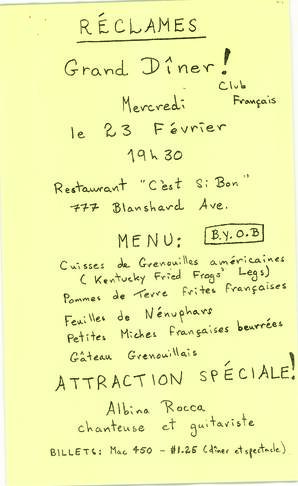 RÉCLAMES
Grand Dîner!
Club
Mercredi Français
le 23 Février
19h30
Restaurant "C'est Si Bon"
777 Blanshard Ave.
MENU: B.Y.O.B
Cuisses de Grenouilles américaines
( Kentucky Fried Frogs' Legs)
Pommes de Terre Frites Françaises
Feuilles de Nénuphars
Petites Miches Françaises beurrées
Gâteau Grenouillais
ATTRACTION SPÉCIALE!
Albina Rocca
chanteuse et guitariste
BILLETS: Mac 450 - $1.25 (dîner et spectacle)